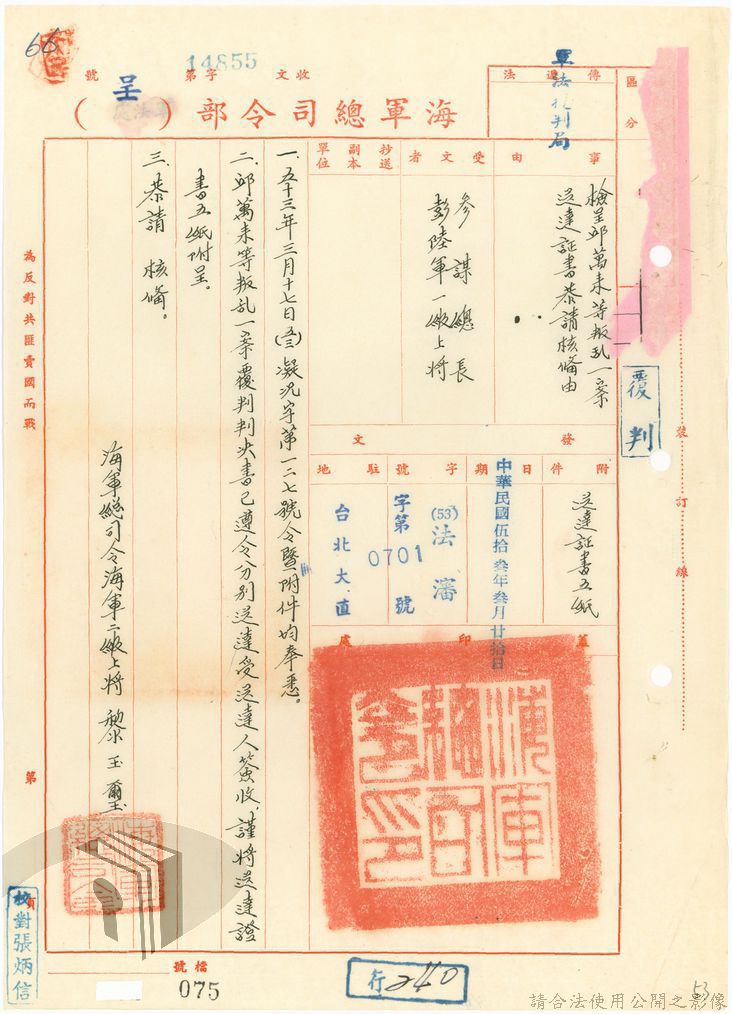 66
收文 字第 號
14855
海軍總司令部（呈）
區分
傳遞法
軍法覆判局
事由
檢呈邱萬來等叛乱一案
送達証書恭請核備由
受文者
參謀總長
彭陸軍一級上將
抄送副本單位
覆判
附件
送達証書五紙
發文
日期
中華民國伍拾叁年叁月廿拾日
字號
(53)法瀋
字第0701號
駐地
台北大直
蓋印處
海軍總司令印
一、五十三年三月十七日(53)凝況字第一二七號令暨附件均奉悉。
二、邱萬來等叛乱一案覆判判决書已遵令分別送達受送達人簽收，謹將送達證
書五紙附呈。
三、恭請 核備。
海軍總司令海軍二級上將 黎玉璽
為反對共匪賣國而戰
第
頁
裝訂線
校對張炳信
檔號
075
行240
53
請合法使用公開之影像